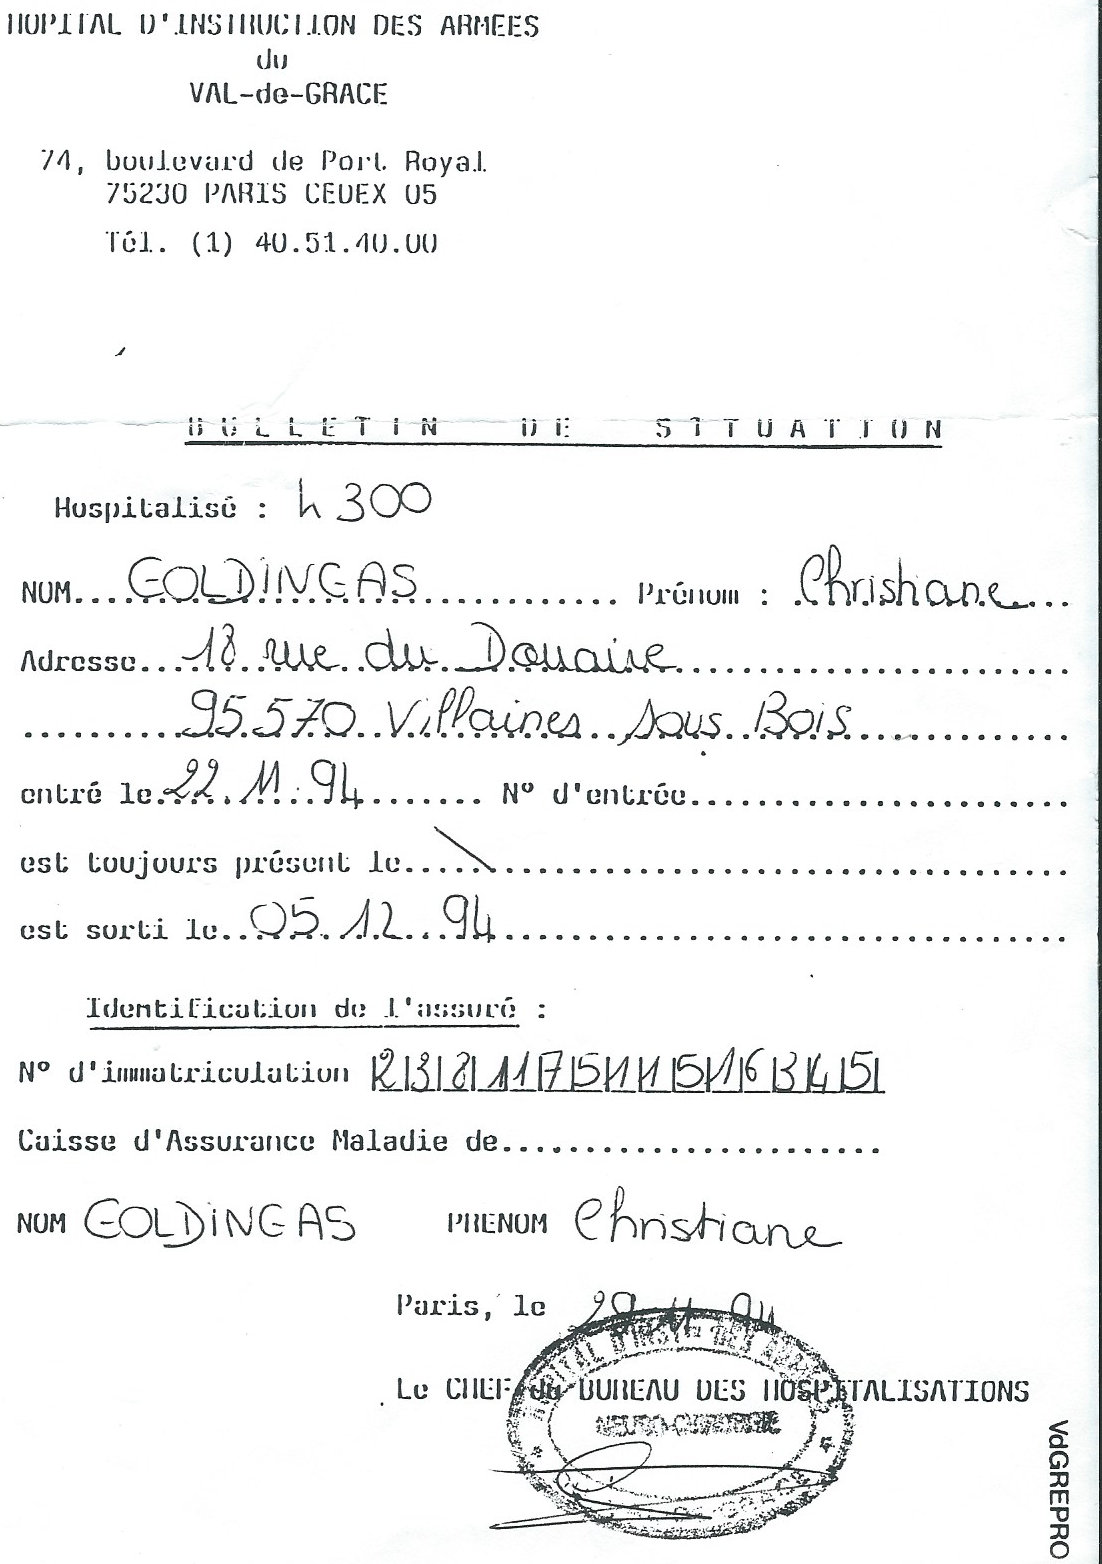 HOPITAL D'INSTRUCTION DES ARMEES
du
VAL-de-GRACE
74, boulevard de Port Royal
75230 PARIS CEDEX 05
Tél. (1) 40.51.40.00
BULLETIN DE SITUATION
Hospitalisé : h 300
NOM....GOLDINGAS............ Prénom : Christiane...
Adresse...18 rue du Douaire........................
..........95.570 Villaines sous Bois...............
entré le 22.11.94....... N° d'entrée.......................
est toujours présent le.....\...................................
est sorti le..05.12.94..................................
Identification de l'assuré :
N° d'immatriculation |2|3|8|11|7|5|1|1|5|1|6|3|4|5|
Caisse d'Assurance Maladie de.......................
NOM GOLDINGAS PRENOM Christiane
Paris, le 29.11.94
Le CHEF du BUREAU DES HOSPITALISATIONS
NEURO-CHIRURGIE
VdGREPRO